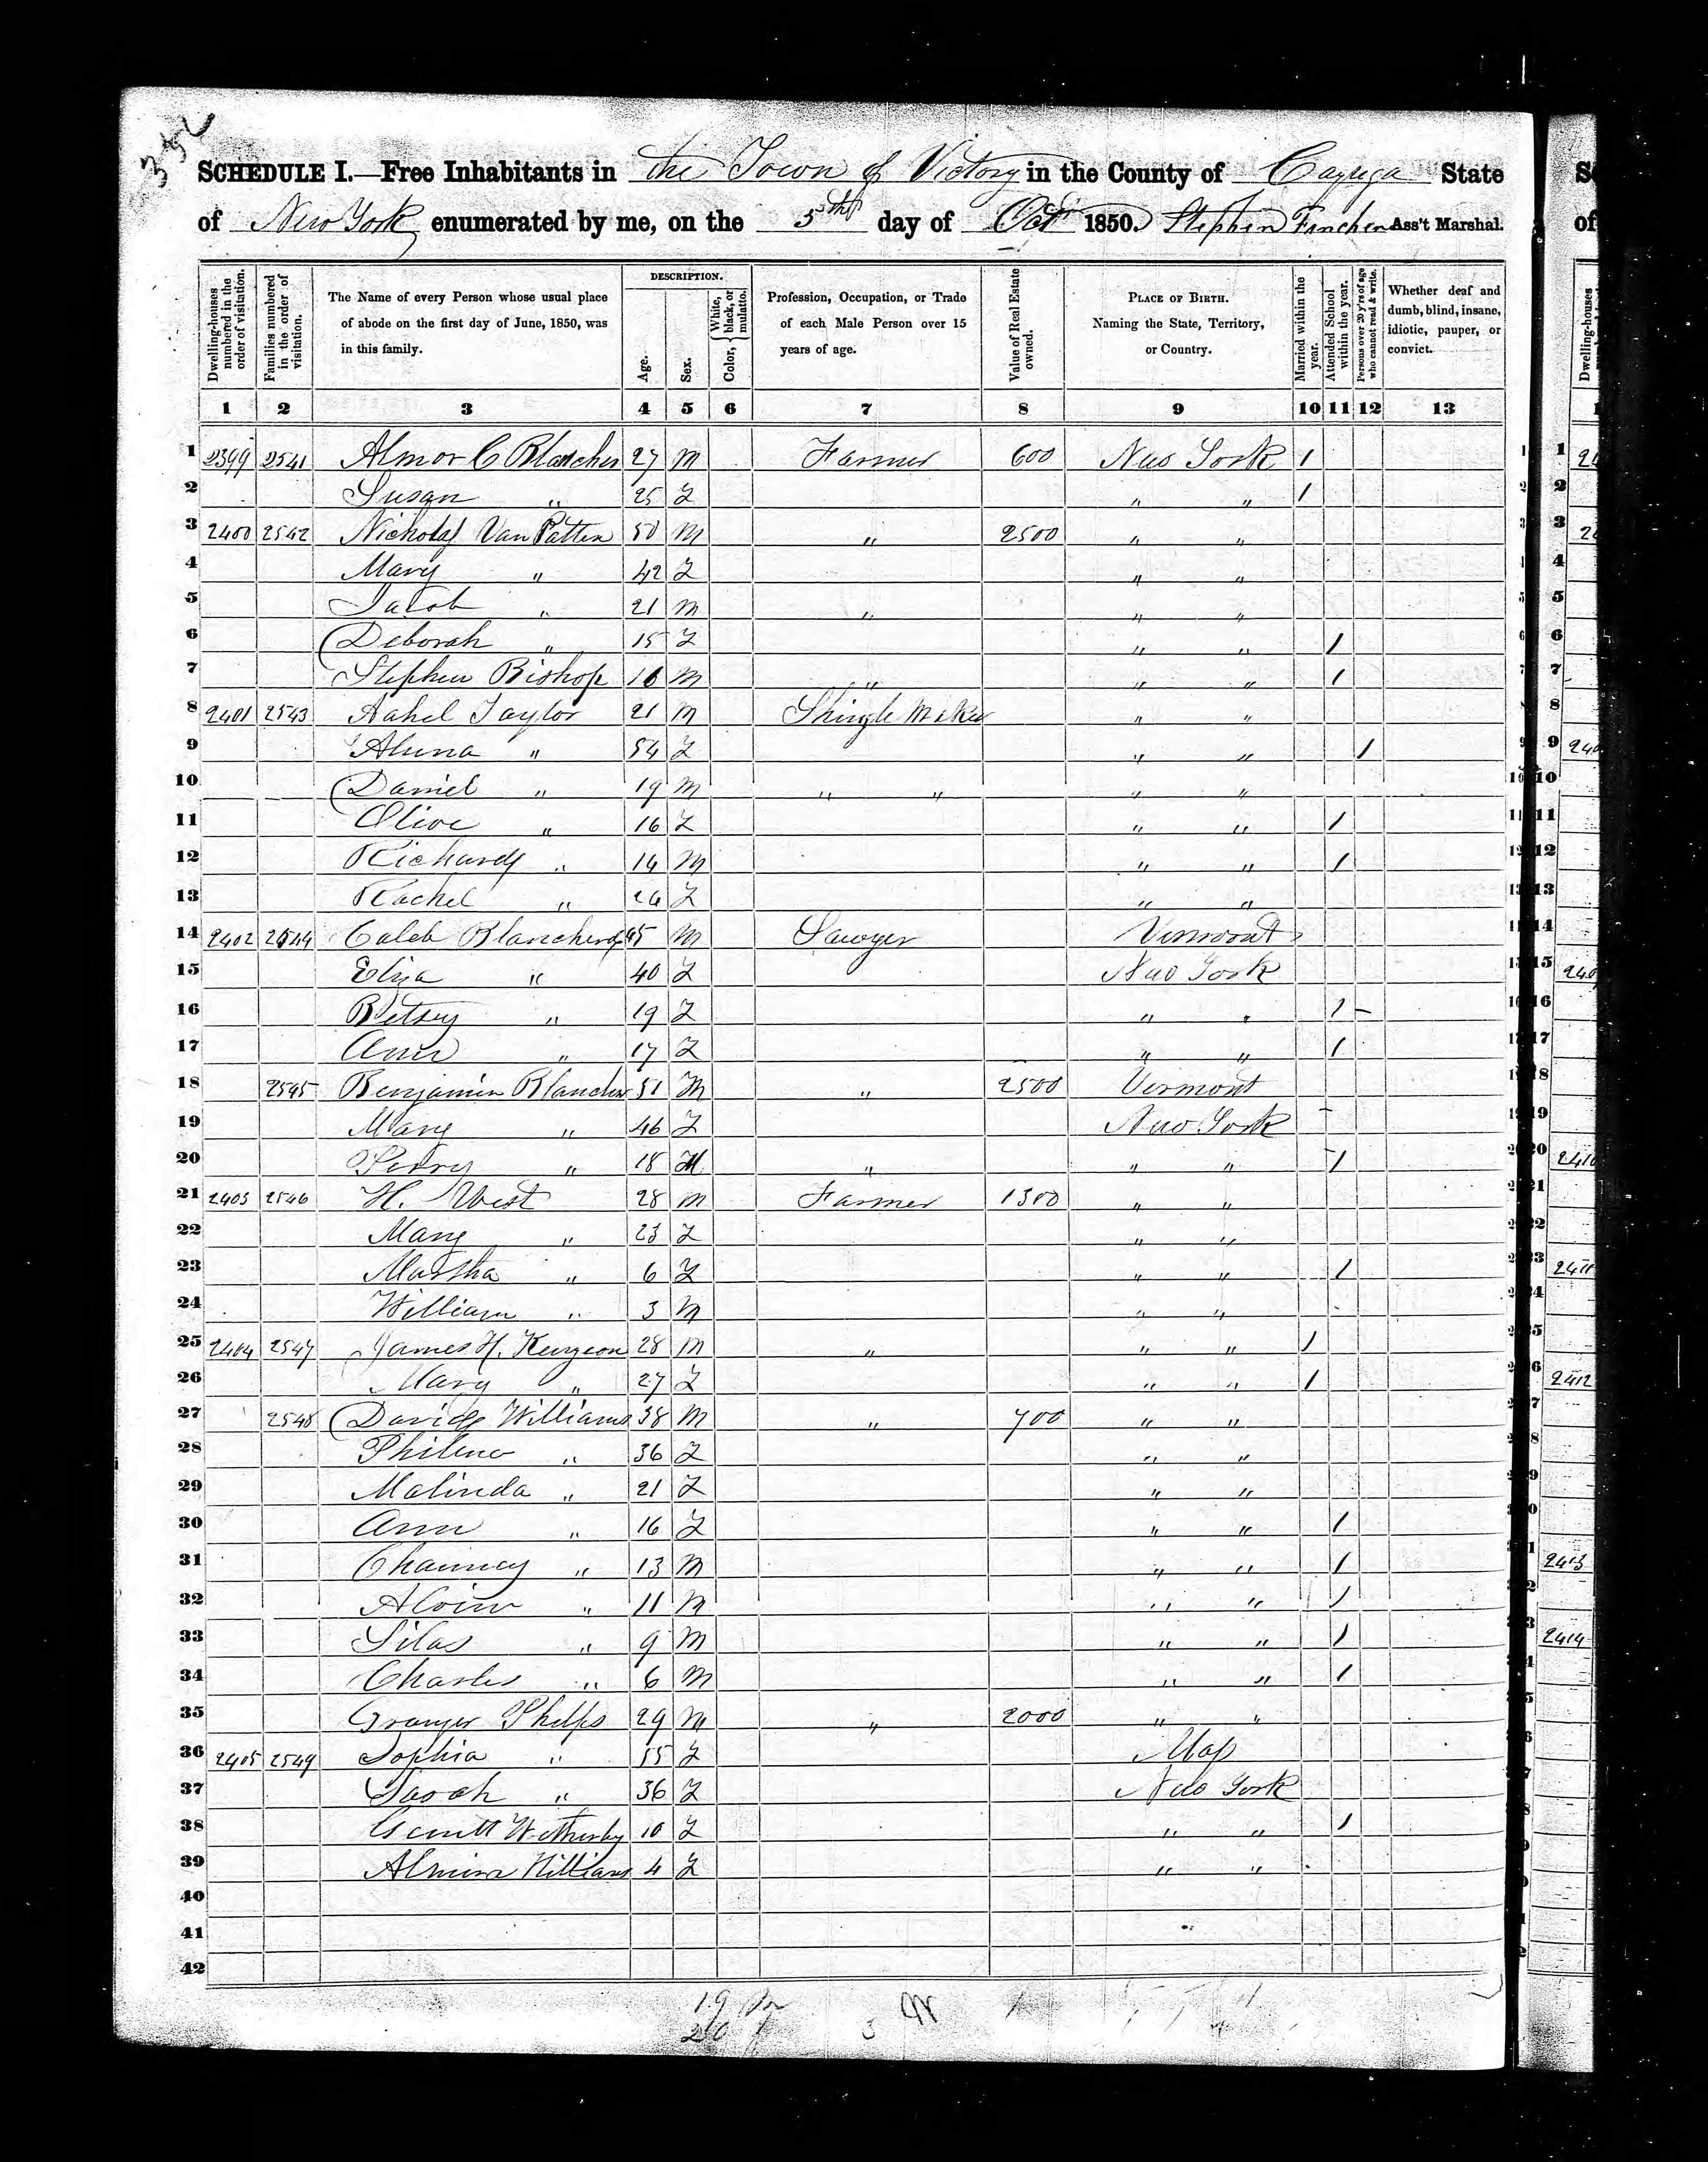 352
SCHEDULE I.—Free Inhabitants in the Town of Victory in the County of Cayuga State
of New York enumerated by me, on the 5th day of Oct 1850. Stephen Ass't Marshal.
Dwelling-houses numbered in the order of visitation.
Families numbered in the order of visitation.
The Name of every Person whose usual place of abode on the first day of June, 1850, was in this family.
DESCRIPTION.
Age.
Sex.
Color, { White, black, or mulatto.
Profession, Occupation, or Trade of each Male Person over 15 years of age.
Value of Real Estate owned.
PLACE OF BIRTH. Naming the State, Territory, or Country.
Married within the year.
Attended School within the year.
Persons over 20 y'rs of age who cannot read & write.
Whether deaf and dumb, blind, insane, idiotic, pauper, or convict.
1 2 3 4 5 6 7 8 9 10 11 12 13
1 2399 2541 Almor C Blancher 27 M Farmer 600 New York /
2 Susan " 25 F " " /
3 2400 2542 Nicholas Van Patten 50 M " 2500 " "
4 Mary " 42 F " "
5 Jacob " 21 M " " "
6 Deborah " 15 F " " /
7 Stephen Bishop 16 M " " " /
8 2401 2543 Taylor 21 M Shingle Maker " "
9 " 54 F " " /
10 Daniel " 19 M " " " "
11 Olive " 16 F " " /
12 Richard " 14 M " " /
13 Rachel " 26 F " "
14 2402 2544 Caleb Blancher 45 M Sawyer Vermont
15 Eliza " 40 F New York
16 Betsey " 19 F " " /
17 Ann " 17 F " " /
18 2545 Benjamin Blancher 51 M " 2500 Vermont
19 Mary " 46 F New York
20 Perry " 18 M " " " /
21 2403 2546 H. West 28 M Farmer 1300 " "
22 Mary " 23 F " "
23 Martha " 6 F " " /
24 William " 3 M " "
25 2404 2547 James H. 28 M " " " /
26 Mary " 27 F " " /
27 2548 David Williams 38 M " 700 " "
28 " 36 F " "
29 Malinda " 21 F " "
30 Ann " 16 F " " /
31 Chauncey " 13 M " " /
32 Alvin " 11 M " " /
33 Silas " 9 M " " /
34 Charles " 6 M " " /
35 Granger Phelps 29 M " 2000 " "
36 2405 2549 Sophia " 55 F Mas
37 Sarah " 36 F New York
38 Wetherby 10 F " " /
39 Almira Williams 4 F " "
40
41
42
19
20